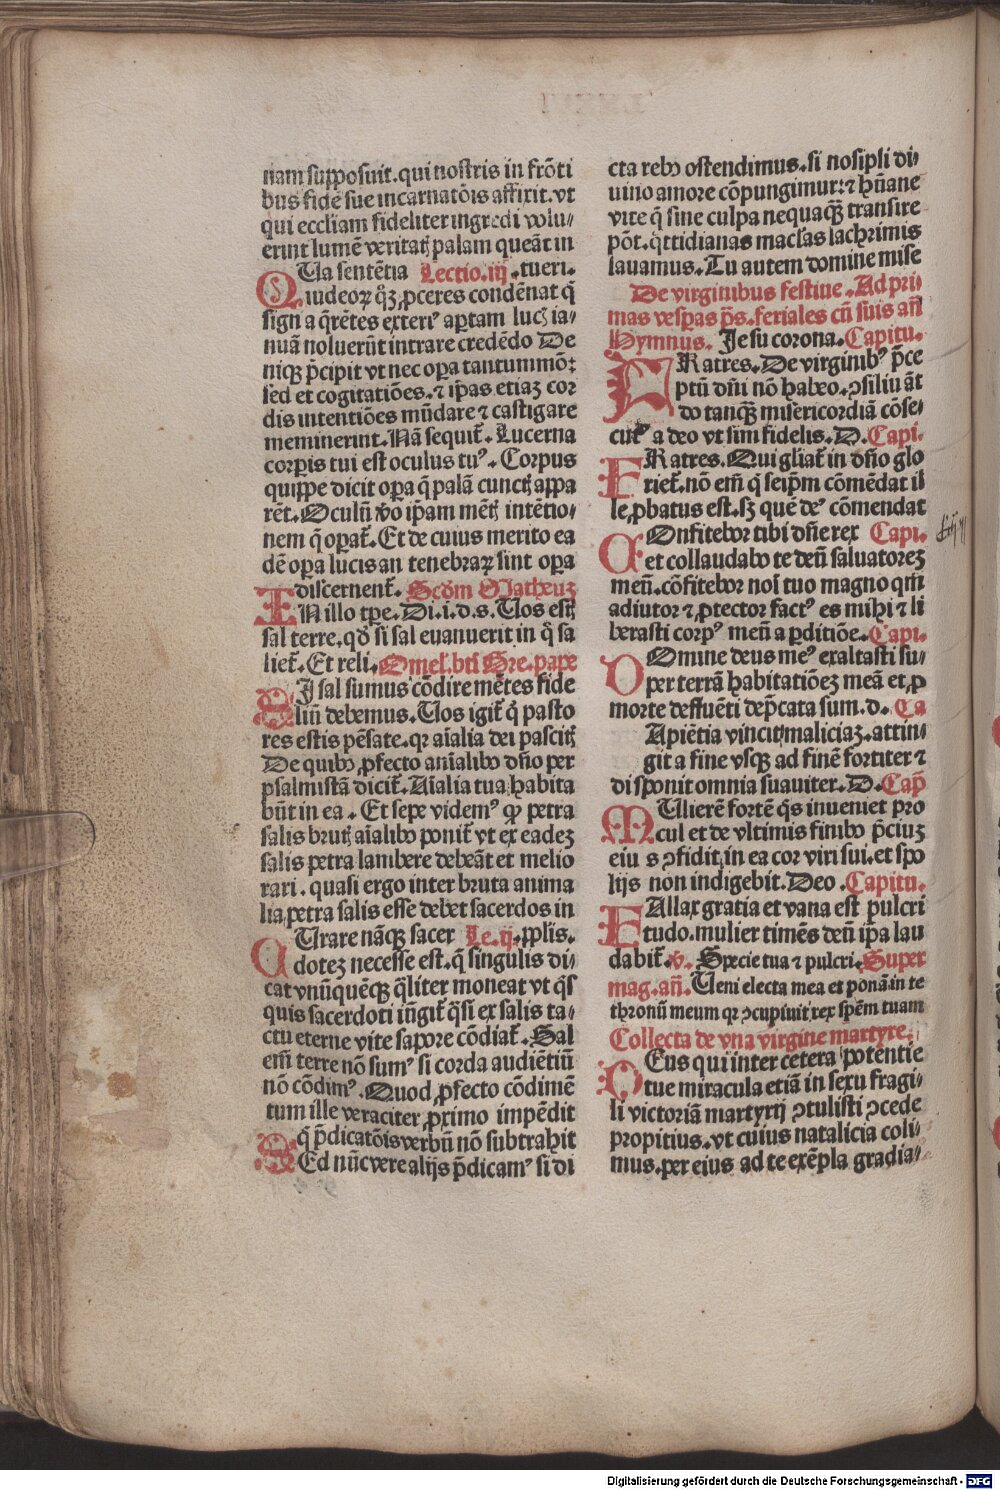 nam supposuit. qui nostris in frōti
bus fidē sue incarnatōis affixit. vt
qui eccliam fideliter ingredi volu-
erint lumē veritatꝭ palam queāt in
QUia sentētia Lectio. iij. tueri.
iudeoꝝ qꝫ ꝓceres condēnat q̄
signa q̄rētes exterꝰ aꝑtam lucꝭ ia-
nuā noluerūt intrare credēdo De
niqꝫ p̄cipit vt nec oꝑa tantummō:
sed et cogitatiōes. ⁊ ip̄as etiaꝫ cor
dis intentiōes mūdare ⁊ castigare
meminerint. Nā sequit̄. Lucerna
corꝑis tui est oculus tuꝰ. Corpus
quippe dicit oꝑa q̄ palā cunctꝭ appa
rēt. Oculū ꝟo ip̄am mētꝭ intētio-
nem q̄ oꝑat̄. Et de cuius merito ea
dē oꝑa lucis an tenebraꝝ sint oꝑa
discernent̄. Scd̄m Matheuꝫ
IN illo tꝑe. Di. i. d. s. Uos estꝭ
sal terre. qd̄ si sal euanuerit in q̄ sa
liet̄. Et reli. Omel̄. bt̄i Gre. pape
SI sal sumus cōdire mētes fide
liū debemus. Uos igit̄ q̇ pasto
res estis pēsate. qꝛ aīalia dei pascitꝭ
De quibꝰ ꝓfecto anīalibꝰ dn̄o per
psalmistā dicit̄. Aīalia tua habita
būt in ea. Et sepe videmꝰ qꝙ petra
salis brutꝭ aīalibꝰ ponit̄ vt ex eadeꝫ
salis petra lambere debeāt et melio
rari. quasi ergo inter bruta anima
lia petra salis esse debet sacerdos in
CUrare nāqꝫ sacer Le. ij. ꝓplis.
doteꝫ necesse est. q̄ singulis di-
cat vnūquēqꝫ q̄liter moneat vt q̄s
quis sacerdoti iūgit̄ q̄si ex salis ta-
ctu eterne vite sapore cōdiat̄. Sal
em̄ terre nō sumꝰ si corda audiētiū
nō cōdimꝰ. Quod ꝓfecto cōdimē
tum ille veraciter ꝓximo impēdit
q̇ p̄dicatōis verbū nō subtrahit
SEd nūc vere alijs p̄dicamꝰ si di
cta rebꝰ ostendimus. si nosipsi di-
uino amore cōpungimur: ⁊ hūane
vite q̄ sine culpa nequaqꝫ transire
pōt. q̇ttidianas maclas lachrimis
lauamus. Tu autem domine mise
De virginibus festiue. Ad pri-
mas vesꝑas ps̄. feriales cū suis an̄
Hymnus. Jesu corona. Capitu.
FRatres. De virginibꝰ p̄ce
ptū dn̄i nō habeo. ꝯsiliū āt
do tanqꝫ misericordiā cōse-
cutꝰ a deo vt sim fidelis. D. Capi.
FRatres. Qui gliat̄ in dn̄o glo
riet̄. nō em̄ q̇ seip̄m cōmēdat il
le ꝓbatus est. sꝫ quē deꝰ cōmendat
COnfitebor tibi dn̄e rex Capi.
et collaudabo te deū saluatoreꝫ
meū. cōfitebor noī tuo magno qm̄
adiutor ⁊ ꝓtector factꝰ es mihi ⁊ li
berasti corpꝰ meū a ꝑditiōe. Capi.
DOmine deus meꝰ exaltasti su-
per terrā habitatiōeꝫ meā et ꝓ
morte deffuēti dep̄cata sum. d. Ca
Apiētia vincit maliciaꝫ. attin-
git a fine vsqꝫ ad finē fortiter ⁊
disponit omnia suauiter. D. Cap̄
MUlierē fortē q̇s inueniet pro
cul et de vltimis finibꝰ p̄ciuꝫ
eius ꝯfidit in ea cor viri sui. et spo
lijs non indigebit. Deo. Capitu.
FAllax gratia et vana est pulcri
tudo. mulier timēs deū ip̄a lau
dabit̄. ꝟ. Specie tua ⁊ pulcri. Super
mag. an̄. Ueni electa mea et ponā in te
thronū meum qꝛ ꝯcupiuit rex spēm tuam
Collecta de vna virgine martyre.
DEus qui inter cetera potentie
tue miracula etiā in sexu fragi-
li victoriā martyrij ꝯtulisti ꝯcede
propitius. vt cuius natalicia coli-
mus. per eius ad te exēpla gradia-
Digitalisierung gefördert durch die Deutsche Forschungsgemeinschaft - DFG